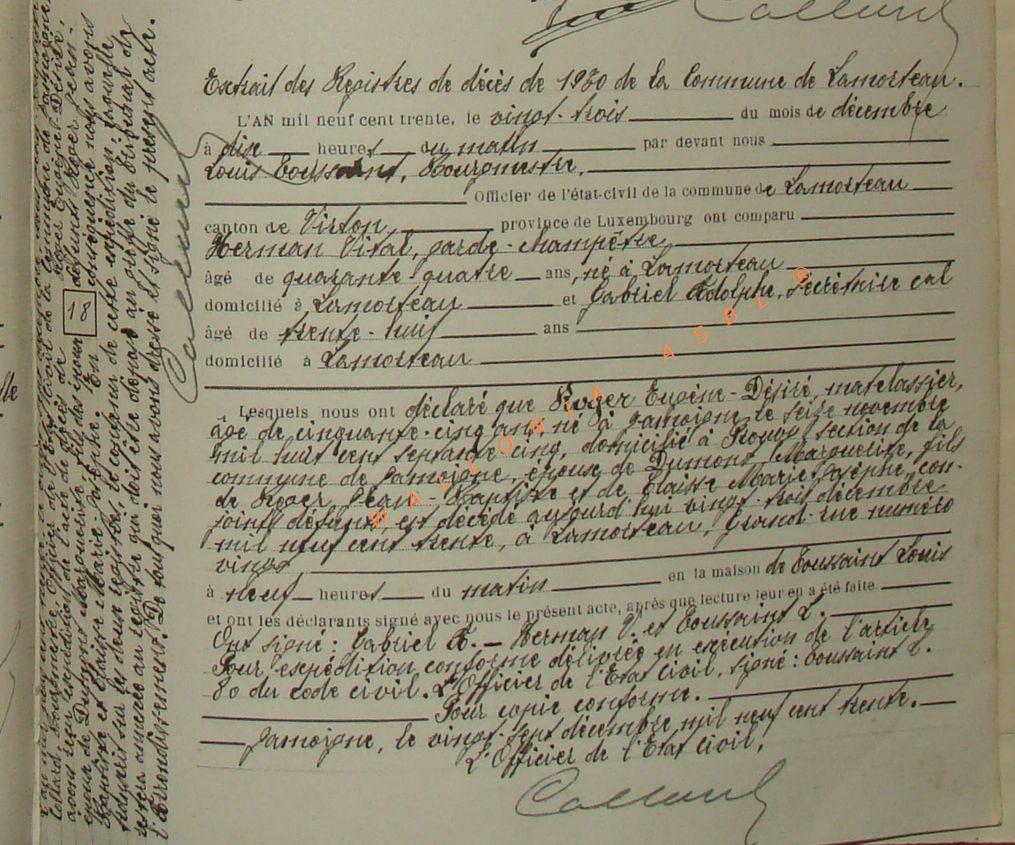 Collard
Extrait des Registres de décès de 1930 de la Commune de Lamorteau.
L'AN mil neuf cent trente, le vingt-trois du mois de décembre
à dix heures du matin par devant nous
Louis Toussaint, Bourgmestre,
Officier de l'état-civil de la commune de Lamorteau
canton de Virton, province de Luxembourg ont comparu
Herman Vital, garde-champêtre
âgé de quarante quatre ans, né à Lamorteau
domicilié à Lamorteau et Gabriel Adolphe, secrétaire cal
âgé de trente-huit ans
domicilié à Lamorteau
Lesquels nous ont déclaré que Roger Eugène-Désiré, matelassier,
âgé de cinquante-cinq ans, né à Jamoigne le seize novembre
mil huit cent septante cinq, domicilié à Prouvy section de la
commune de Jamoigne, époux de Dumont Marguerite, fils
de Roger Jean-Baptiste et de Claisse Marie-Josèphe, con-
joints défunts est décédé aujourd'hui vingt-trois décembre
mil neuf cent trente, à Lamorteau, Grand-rue numéro
vingt
à neuf heures du matin en la maison de Toussaint Louis
et ont les déclarants signé avec nous le présent acte, après que lecture leur en a été faite.
Ont signé : Gabriel A. – Herman V. et Toussaint L.
Pour expédition conforme délivrée en exécution de l'article
80 du code civil. L'Officier de l'Etat Civil, signé : Toussaint L.
Pour copie conforme.
Jamoigne, le vingt-sept décembre mil neuf cent trente.
L'Officier de l'Etat Civil,
Collard
Collard, Bourgmestre, Officier de l'Etat Civil de la Commune de Jamoigne,
avons reçu l'expédition de l'acte de décès de Roger Eugène-Désiré,
époux de Dumont Marguerite, fils des époux défunts Roger Jean-
Baptiste et Claisse Marie-Josèphe. En conséquence nous avons
transcrit sur les deux registres, le contenu de cette expédition, laquelle
restera annexée au registre qui doit être déposé au greffe du tribunal de
l'Arrondissement. De tout quoi nous avons dressé et signé le présent acte.
18
Collard
WALLONIA ASBL ©